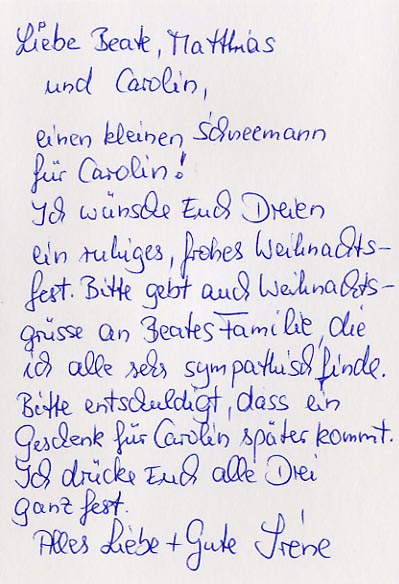 Liebe Beate, Matthias
und Carolin,
einen kleinen Schneemann
für Carolin!
Ich wünsche Euch Dreien
ein ruhiges, frohes Weihnachts-
fest. Bitte gebt auch Weihnachts-
grüsse an Beates Familie, die
ich alle sehr sympathisch finde.
Bitte entschuldigt, dass ein
Geschenk für Carolin später kommt.
Ich drücke Euch alle Drei
ganz fest.
Alles Liebe + Gute Irene